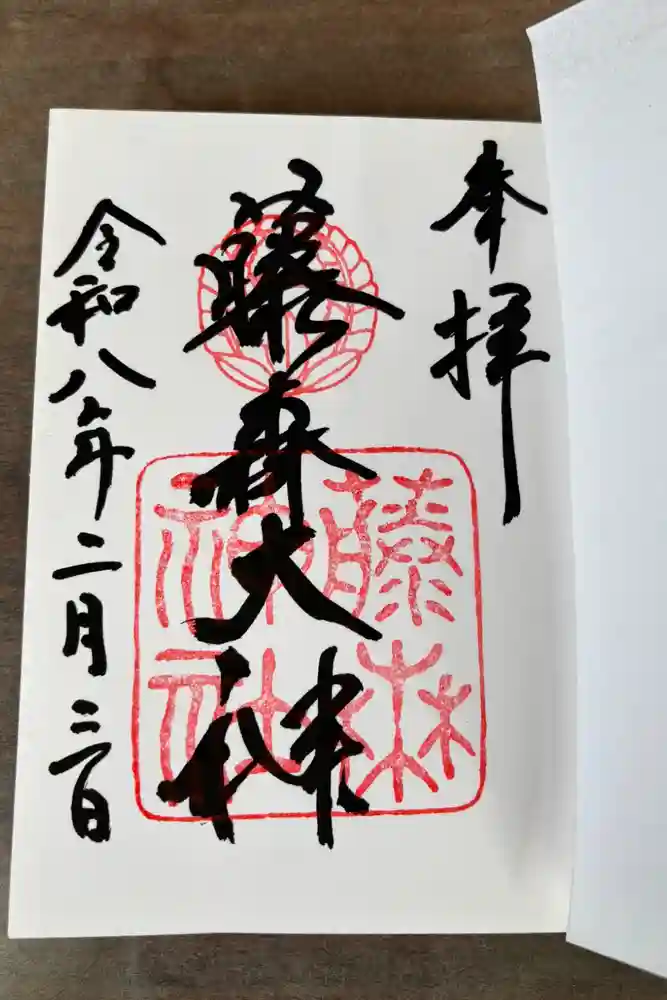 奉拝
藤森大神
令和八年二月三日
藤森
神社